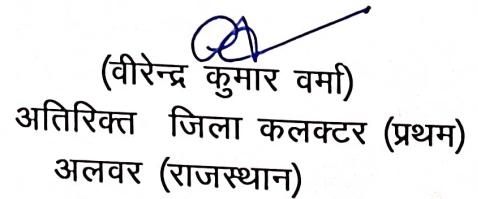 (वीरेन्द्र कुमार वर्मा)
अतिरिक्त जिला कलक्टर (प्रथम)
अलवर (राजस्थान)